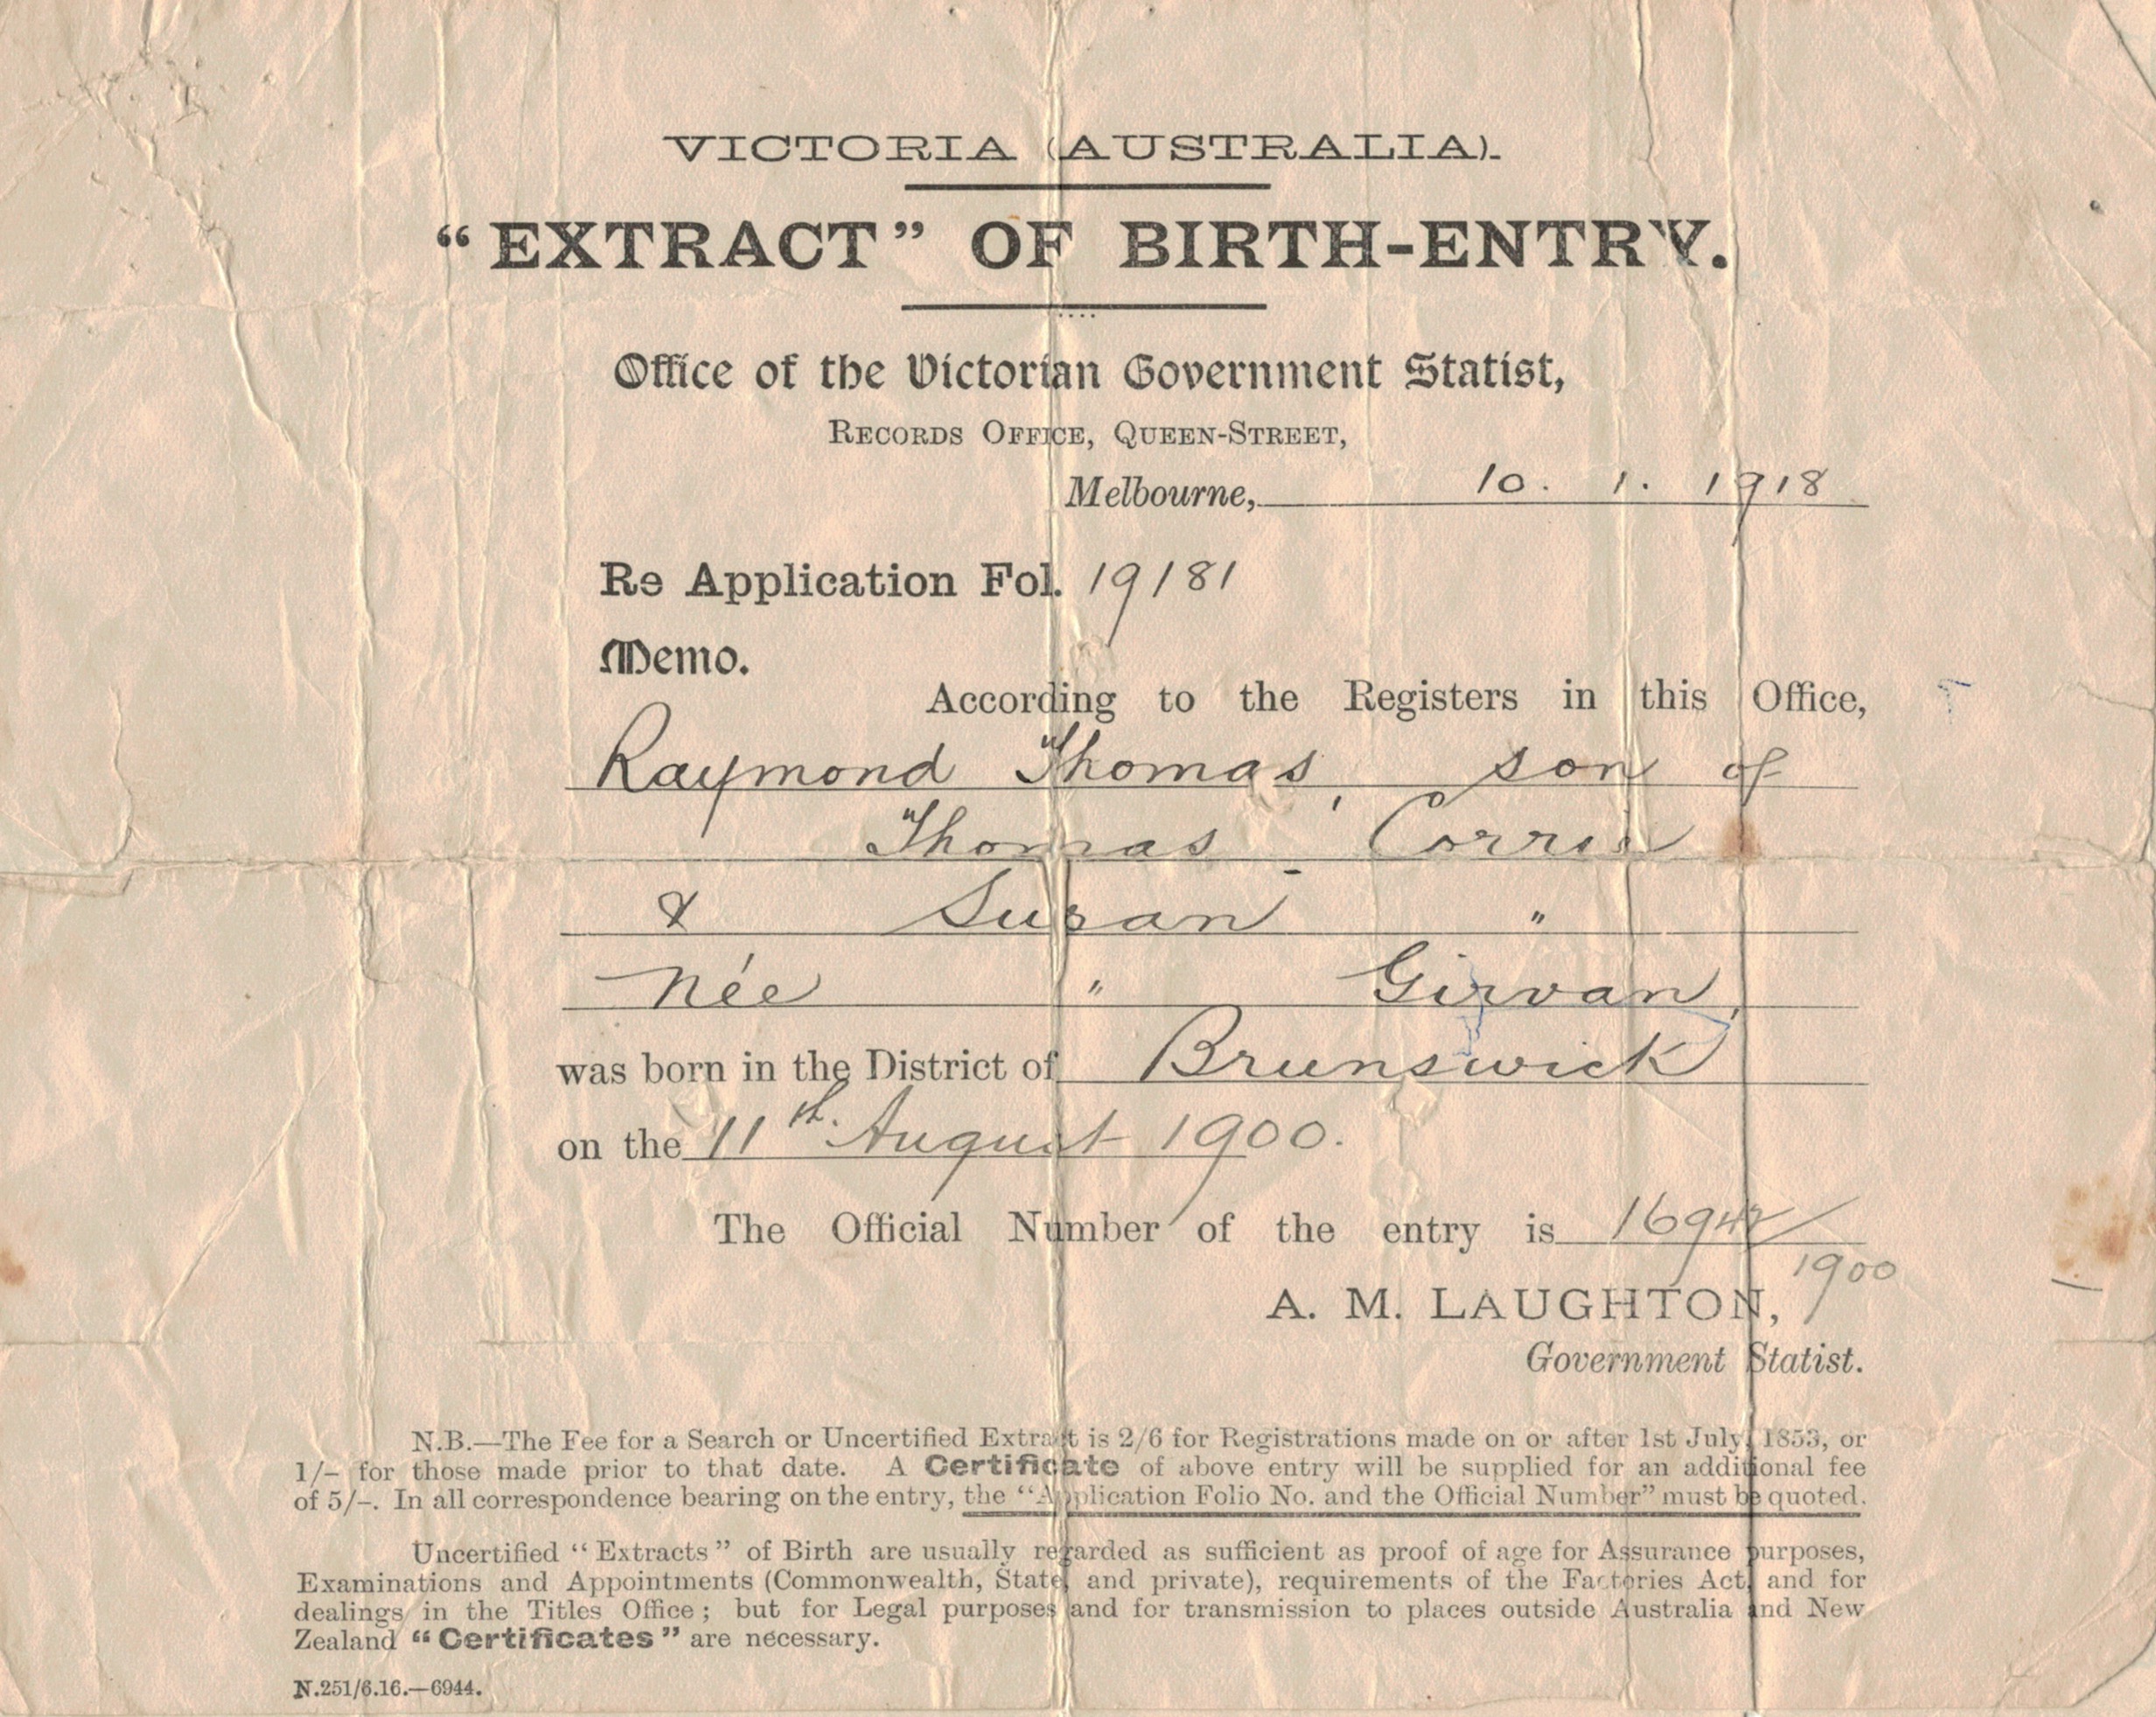 VICTORIA (AUSTRALIA).
"EXTRACT" OF BIRTH-ENTRY.
Office of the Victorian Government Statist,
RECORDS OFFICE, QUEEN-STREET,
Melbourne, 10. 1. 1918
Re Application Fol. 19181
Memo.
According to the Registers in this Office,
Raymond Thomas, son of
Thomas Corrie
& Susan "
née " Girvan,
was born in the District of Brunswick
on the 11th. August 1900.
The Official Number of the entry is /
1900
A. M. LAUGHTON,
Government Statist.
N.B.—The Fee for a Search or Uncertified Extract is 2/6 for Registrations made on or after 1st July, 1853, or
1/– for those made prior to that date. A Certificate of above entry will be supplied for an additional fee
of 5/–. In all correspondence bearing on the entry, the "Application Folio No. and the Official Number" must be quoted.
Uncertified "Extracts" of Birth are usually regarded as sufficient as proof of age for Assurance purposes,
Examinations and Appointments (Commonwealth, State, and private), requirements of the Factories Act, and for
dealings in the Titles Office; but for Legal purposes and for transmission to places outside Australia and New
Zealand "Certificates" are necessary.
N.251/6.16.—6944.